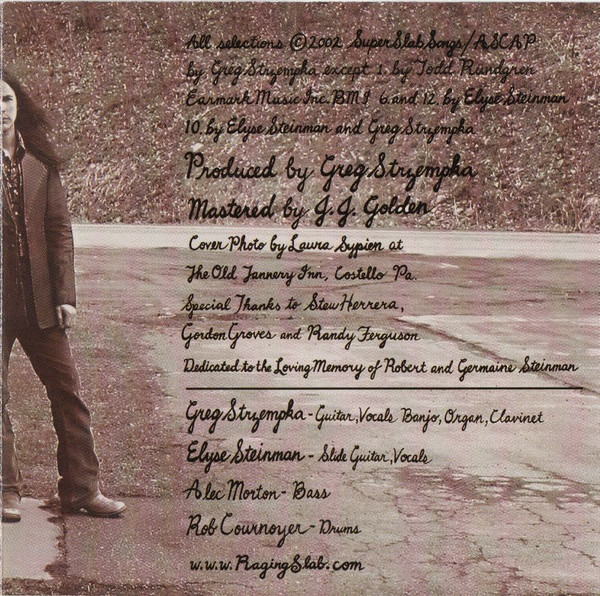 All selections ©2002 SuperSlabSongs/ASCAP
by Greg Strzempka except 1. by Todd Rundgren
Earmark Music Inc. BMI 6. and 12. by Elyse Steinman
10. by Elyse Steinman and Greg Strzempka
Produced by Greg Strzempka
Mastered by J.J. Golden
Cover Photo by Laura Sypien at
The Old Tannery Inn, Costello Pa.
Special Thanks to Stew Herrera,
Gordon Groves and Randy Ferguson
Dedicated to the Loving Memory of Robert and Germaine Steinman
Greg Strzempka - Guitar, Vocals Banjo, Organ, Clavinet
Elyse Steinman - Slide Guitar, Vocals
Alec Morton - Bass
Rob Cournoyer - Drums
www.RagingSlab.com